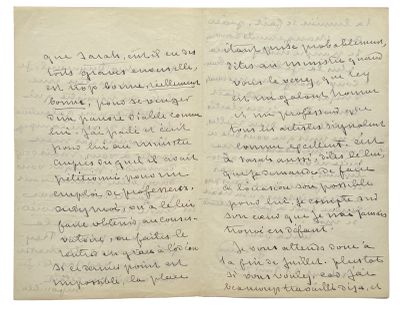 que Sarah, eut-il eu des
torts graves envers elle,
est trop bonne, réellement
bonne, pour se venger
d'un pauvre diable comme
lui. J'ai parlé et écrit
pour lui au ministre
auprès duquel il avait
pétitionné pour un
emploi de professeur.
aidez-moi, ou à le lui
faire obtenir au conser-
vatoire, ou faites le
rentrer en grâce à l'odéon
Si ce dernier point est
impossible, la place
étant prise probablement,
dites au ministre quand
vous le verrez, que
est un galant homme
et un professeur que
tous les artistes signalent
comme excellent. C'est
à Sarah aussi, dites le lui,
que je demande de faire
à l'occasion son possible
pour lui, je compte sur
son cœur que je n'ai jamais
trouvé en défaut.
Je vous attends donc à
la fin de Juillet. plus tôt
si vous voulez, car j'ai
beaucoup travaillé et